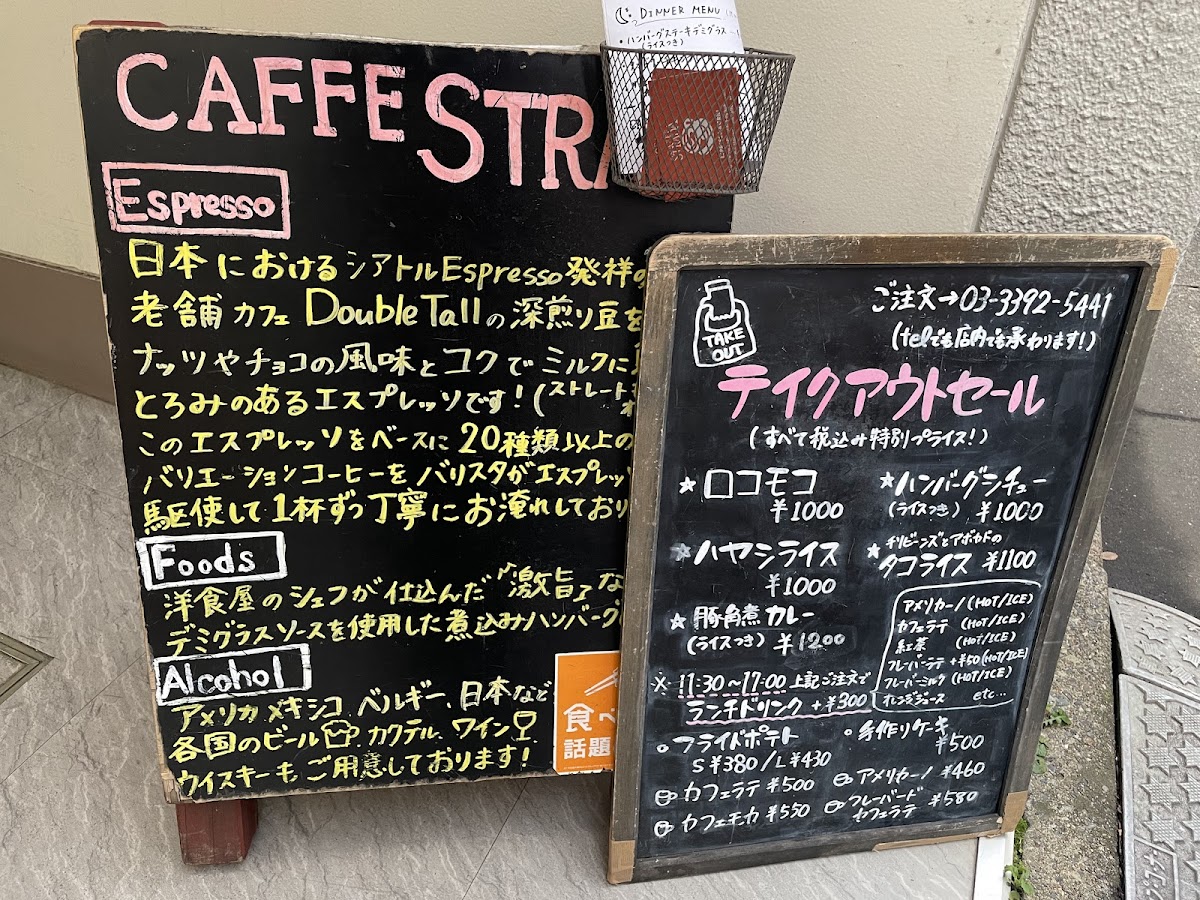 DINNER MENU
・ハンバーグステーキデミグラス
(ライスつき)
CAFFE STRA
Espresso
日本におけるシアトルEspresso発祥の
老舗カフェ Double Tallの深煎り豆を
ナッツやチョコの風味とコクでミルクに
とろみのあるエスプレッソです!(ストレート
このエスプレッソをベースに20種類以上の
バリエーションコーヒーをバリスタがエスプレッ
駆使して1杯ずつ丁寧にお淹れしており
Foods
洋食屋のシェフが仕込んだ"激旨"な
デミグラスソースを使用した煮込みハンバーグ
Alcohol
アメリカ、メキシコ、ベルギー、日本など
各国のビール、カクテル、ワイン
ウイスキーもご用意しております!
食べ
話題
TAKE
OUT
ご注文→03-3392-5441
(telでも店内でも承わります!)
テイクアウトセール
(すべて税込み特別プライス!)
★ロコモコ
¥1000
★ハンバーグシチュー
(ライスつき) ¥1000
★ハヤシライス
¥1000
★チリビーンズとアボカドの
タコライス ¥1100
★豚角煮カレー
(ライスつき) ¥1200
アメリカーノ(HOT/ICE)
カフェラテ (HOT/ICE)
紅茶 (HOT/ICE)
フレーバーラテ+¥50(HOT/ICE)
フレーバーミルク (HOT/ICE)
オレンジジュース etc...
※11:30~17:00 上記ご注文で
ランチドリンク +¥300
○フライドポテト
S¥380/L¥430
○手作りケーキ
¥500
カフェラテ ¥500
アメリカーノ ¥460
カフェモカ ¥550
フレーバード
カフェラテ ¥580